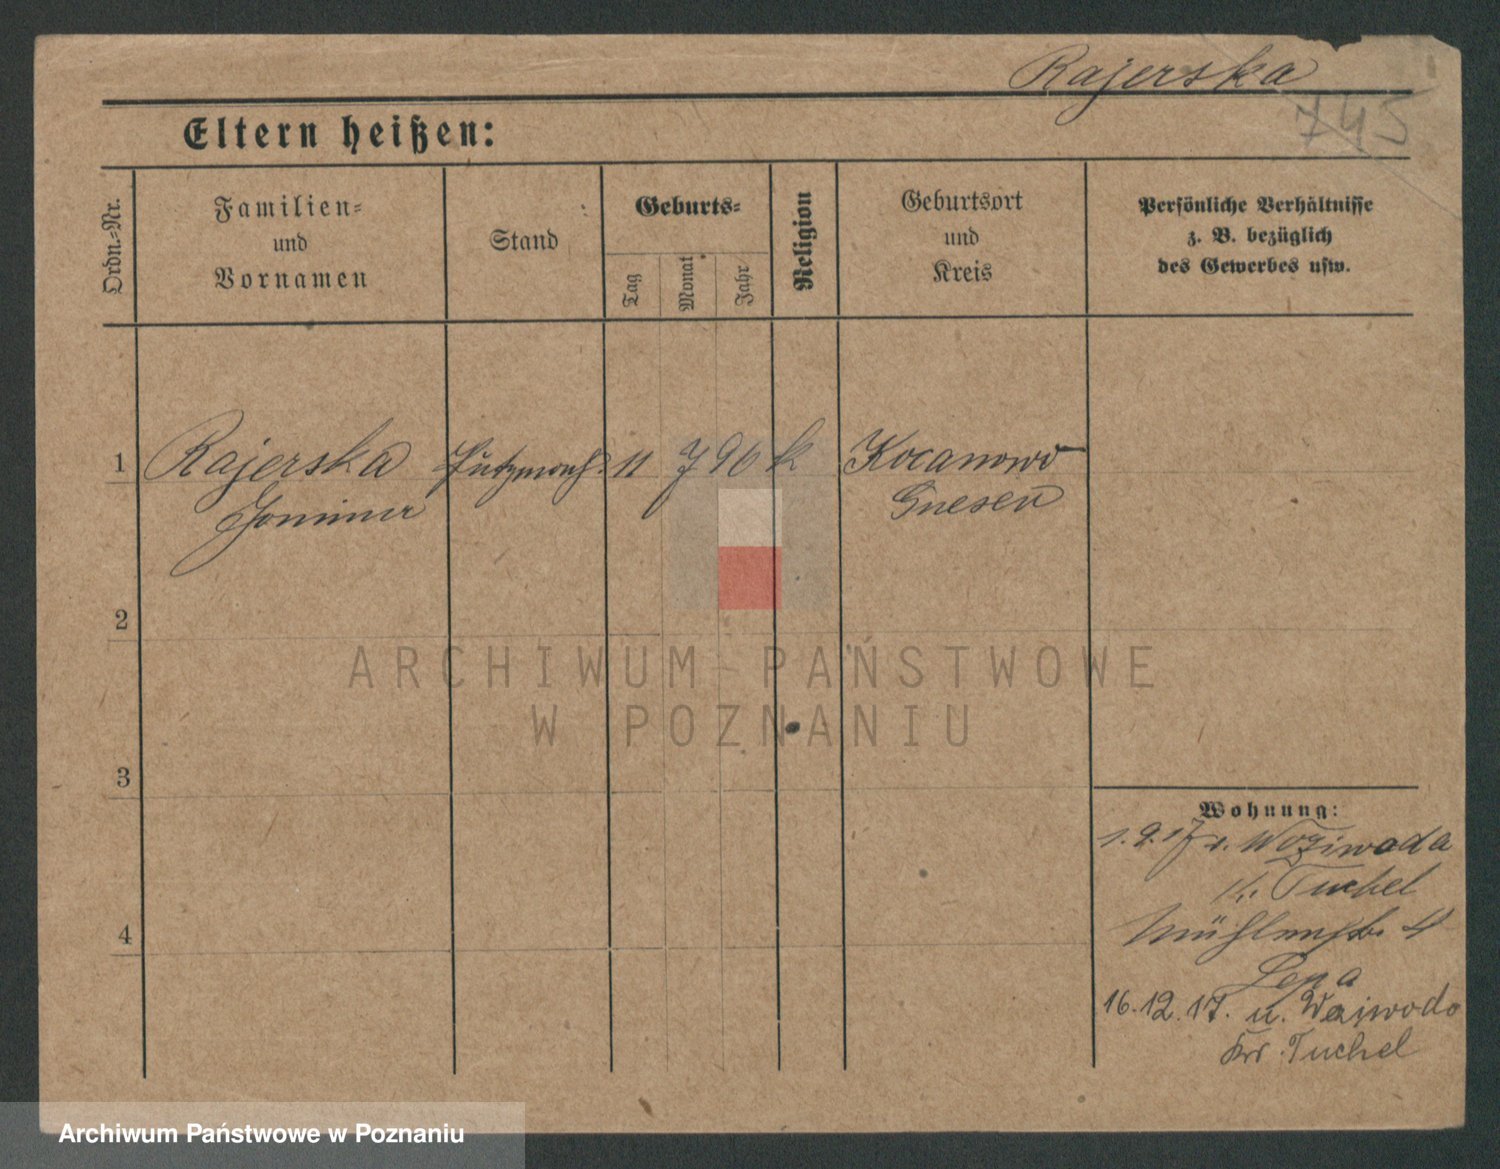 Rajerska
745
Eltern heißen:
Ordn.-Nr.
Familien-
und
Vornamen
Stand
Geburts-
Tag
Monat
Jahr
Religion
Geburtsort
und
Kreis
Persönliche Verhältnisse
z. B. bezüglich
des Gewerbes usw.
1
Rajerska
11 7 96 k
Kocanowo
Gnesen
2
3
4
Wohnung:
1.9.17 Woziwoda
Tuchel
Mühlenstr. 4
Lepa
16.12.17. u. Woiwodo
Kr. Tuchel
ARCHIWUM PAŃSTWOWE
W POZNANIU
Archiwum Państwowe w Poznaniu